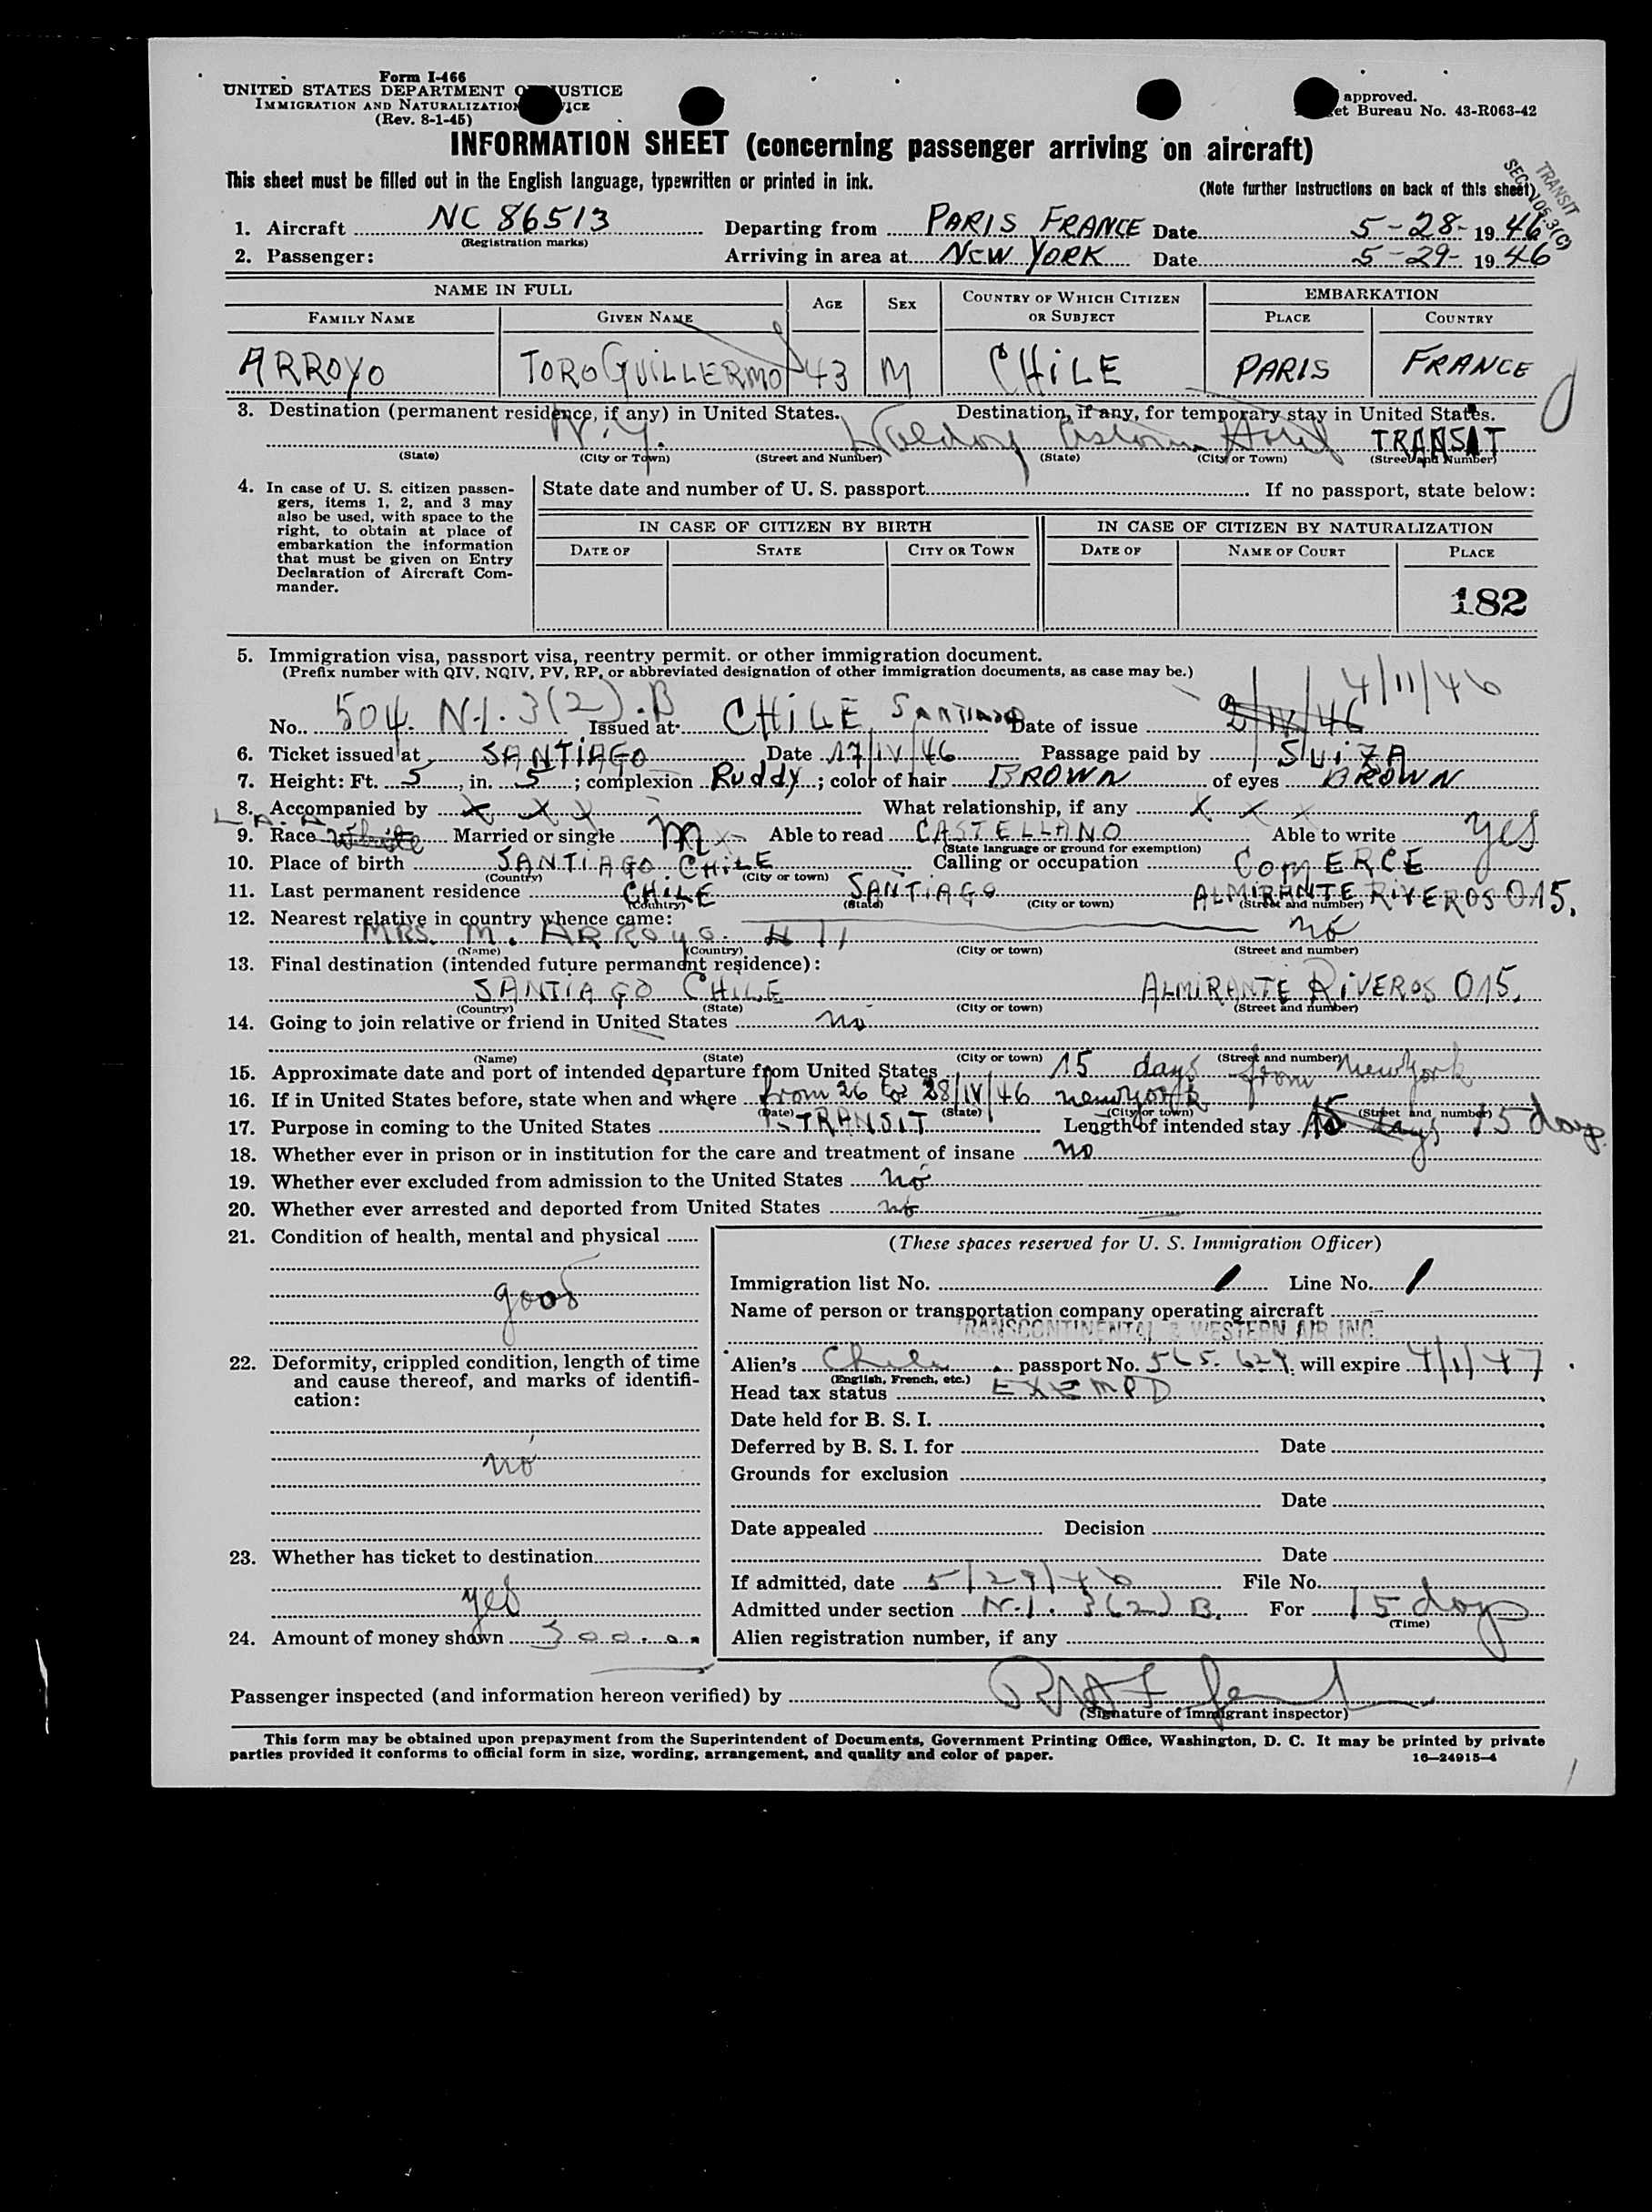 Form I-466
UNITED STATES DEPARTMENT OF JUSTICE
IMMIGRATION AND NATURALIZATION SERVICE
(Rev. 8-1-45)
approved.
et Bureau No. 43-R063-42
INFORMATION SHEET (concerning passenger arriving on aircraft)
This sheet must be filled out in the English language, typewritten or printed in ink.
(Note further instructions on back of this sheet)
TRANSIT
SEC. 105.3(C)
1. Aircraft NC 86513 Departing from PARIS FRANCE Date 5-28- 1946
(Registration marks)
2. Passenger: Arriving in area at NEW YORK Date 5-29- 1946
NAME IN FULL AGE SEX COUNTRY OF WHICH CITIZEN OR SUBJECT EMBARKATION
FAMILY NAME GIVEN NAME PLACE COUNTRY
ARROYO TORO GUILLERMO 43 M CHILE PARIS FRANCE
3. Destination (permanent residence, if any) in United States. Destination, if any, for temporary stay in United States.
N.Y. Waldorf Astoria Hotel TRANSIT
(State) (City or Town) (Street and Number) (State) (City or Town) (Street and Number)
4. In case of U. S. citizen passengers, items 1, 2, and 3 may also be used, with space to the right, to obtain at place of embarkation the information that must be given on Entry Declaration of Aircraft Commander.
State date and number of U. S. passport If no passport, state below:
IN CASE OF CITIZEN BY BIRTH IN CASE OF CITIZEN BY NATURALIZATION
DATE OF STATE CITY OR TOWN DATE OF NAME OF COURT PLACE
182
5. Immigration visa, passport visa, reentry permit, or other immigration document.
(Prefix number with QIV, NQIV, PV, RP, or abbreviated designation of other immigration documents, as case may be.)
4/11/46
No. 504. N.I. 3(2).B Issued at CHILE SANTIAGO Date of issue 2/IV/46
6. Ticket issued at SANTIAGO Date 17/IV/46 Passage paid by SUIZA
7. Height: Ft. 5, in. 5; complexion Ruddy; color of hair BROWN of eyes BROWN
8. Accompanied by X X X What relationship, if any X X X
9. Race White Married or single M Able to read CASTELLANO Able to write yes
(State language or ground for exemption)
10. Place of birth SANTIAGO. CHILE Calling or occupation COMERCE
(Country) (City or town)
11. Last permanent residence CHILE SANTIAGO ALMIRANTE RIVEROS 015.
(Country) (State) (City or town) (Street and number)
12. Nearest relative in country whence came:
MRS. M. ARROYO no
(Name) (Country) (City or town) (Street and number)
13. Final destination (intended future permanent residence):
SANTIAGO CHILE ALMIRANTE RIVEROS 015.
(Country) (State) (City or town) (Street and number)
14. Going to join relative or friend in United States no
(Name) (State) (City or town) (Street and number)
15. Approximate date and port of intended departure from United States 15 days from New York
16. If in United States before, state when and where from 26 to 28/IV/46 new york
(Date) (State) (City or town) (Street and number)
17. Purpose in coming to the United States TRANSIT Length of intended stay 15 days 15 days
18. Whether ever in prison or in institution for the care and treatment of insane no
19. Whether ever excluded from admission to the United States no
20. Whether ever arrested and deported from United States no
21. Condition of health, mental and physical
good
22. Deformity, crippled condition, length of time and cause thereof, and marks of identification:
no
23. Whether has ticket to destination
yes
24. Amount of money shown 300.00
(These spaces reserved for U. S. Immigration Officer)
Immigration list No. 1 Line No. 1
Name of person or transportation company operating aircraft
TRANSCONTINENTAL & WESTERN AIR INC.
Alien's Chile passport No. will expire 4/1/47
(English, French, etc.)
Head tax status EXEMPD
Date held for B. S. I.
Deferred by B. S. I. for Date
Grounds for exclusion
Date
Date appealed Decision
Date
If admitted, date 5/29/46 File No.
Admitted under section N.I. 3(2) B. For 15 days
(Time)
Alien registration number, if any
Passenger inspected (and information hereon verified) by
(Signature of immigrant inspector)
This form may be obtained upon prepayment from the Superintendent of Documents, Government Printing Office, Washington, D. C. It may be printed by private
parties provided it conforms to official form in size, wording, arrangement, and quality and color of paper. 16—24915-4